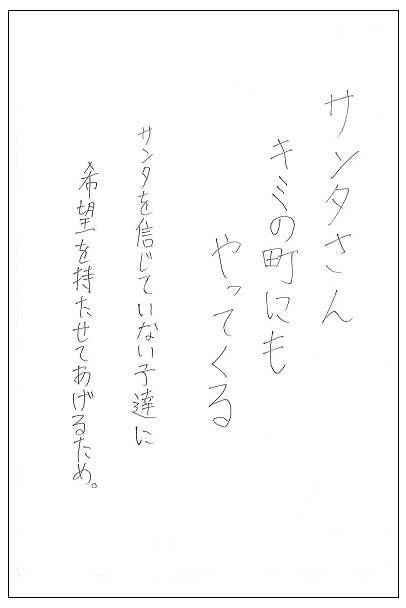 サンタさん
キミの町にも
やってくる
サンタを信じていない子達に
希望を持たせてあげるため。